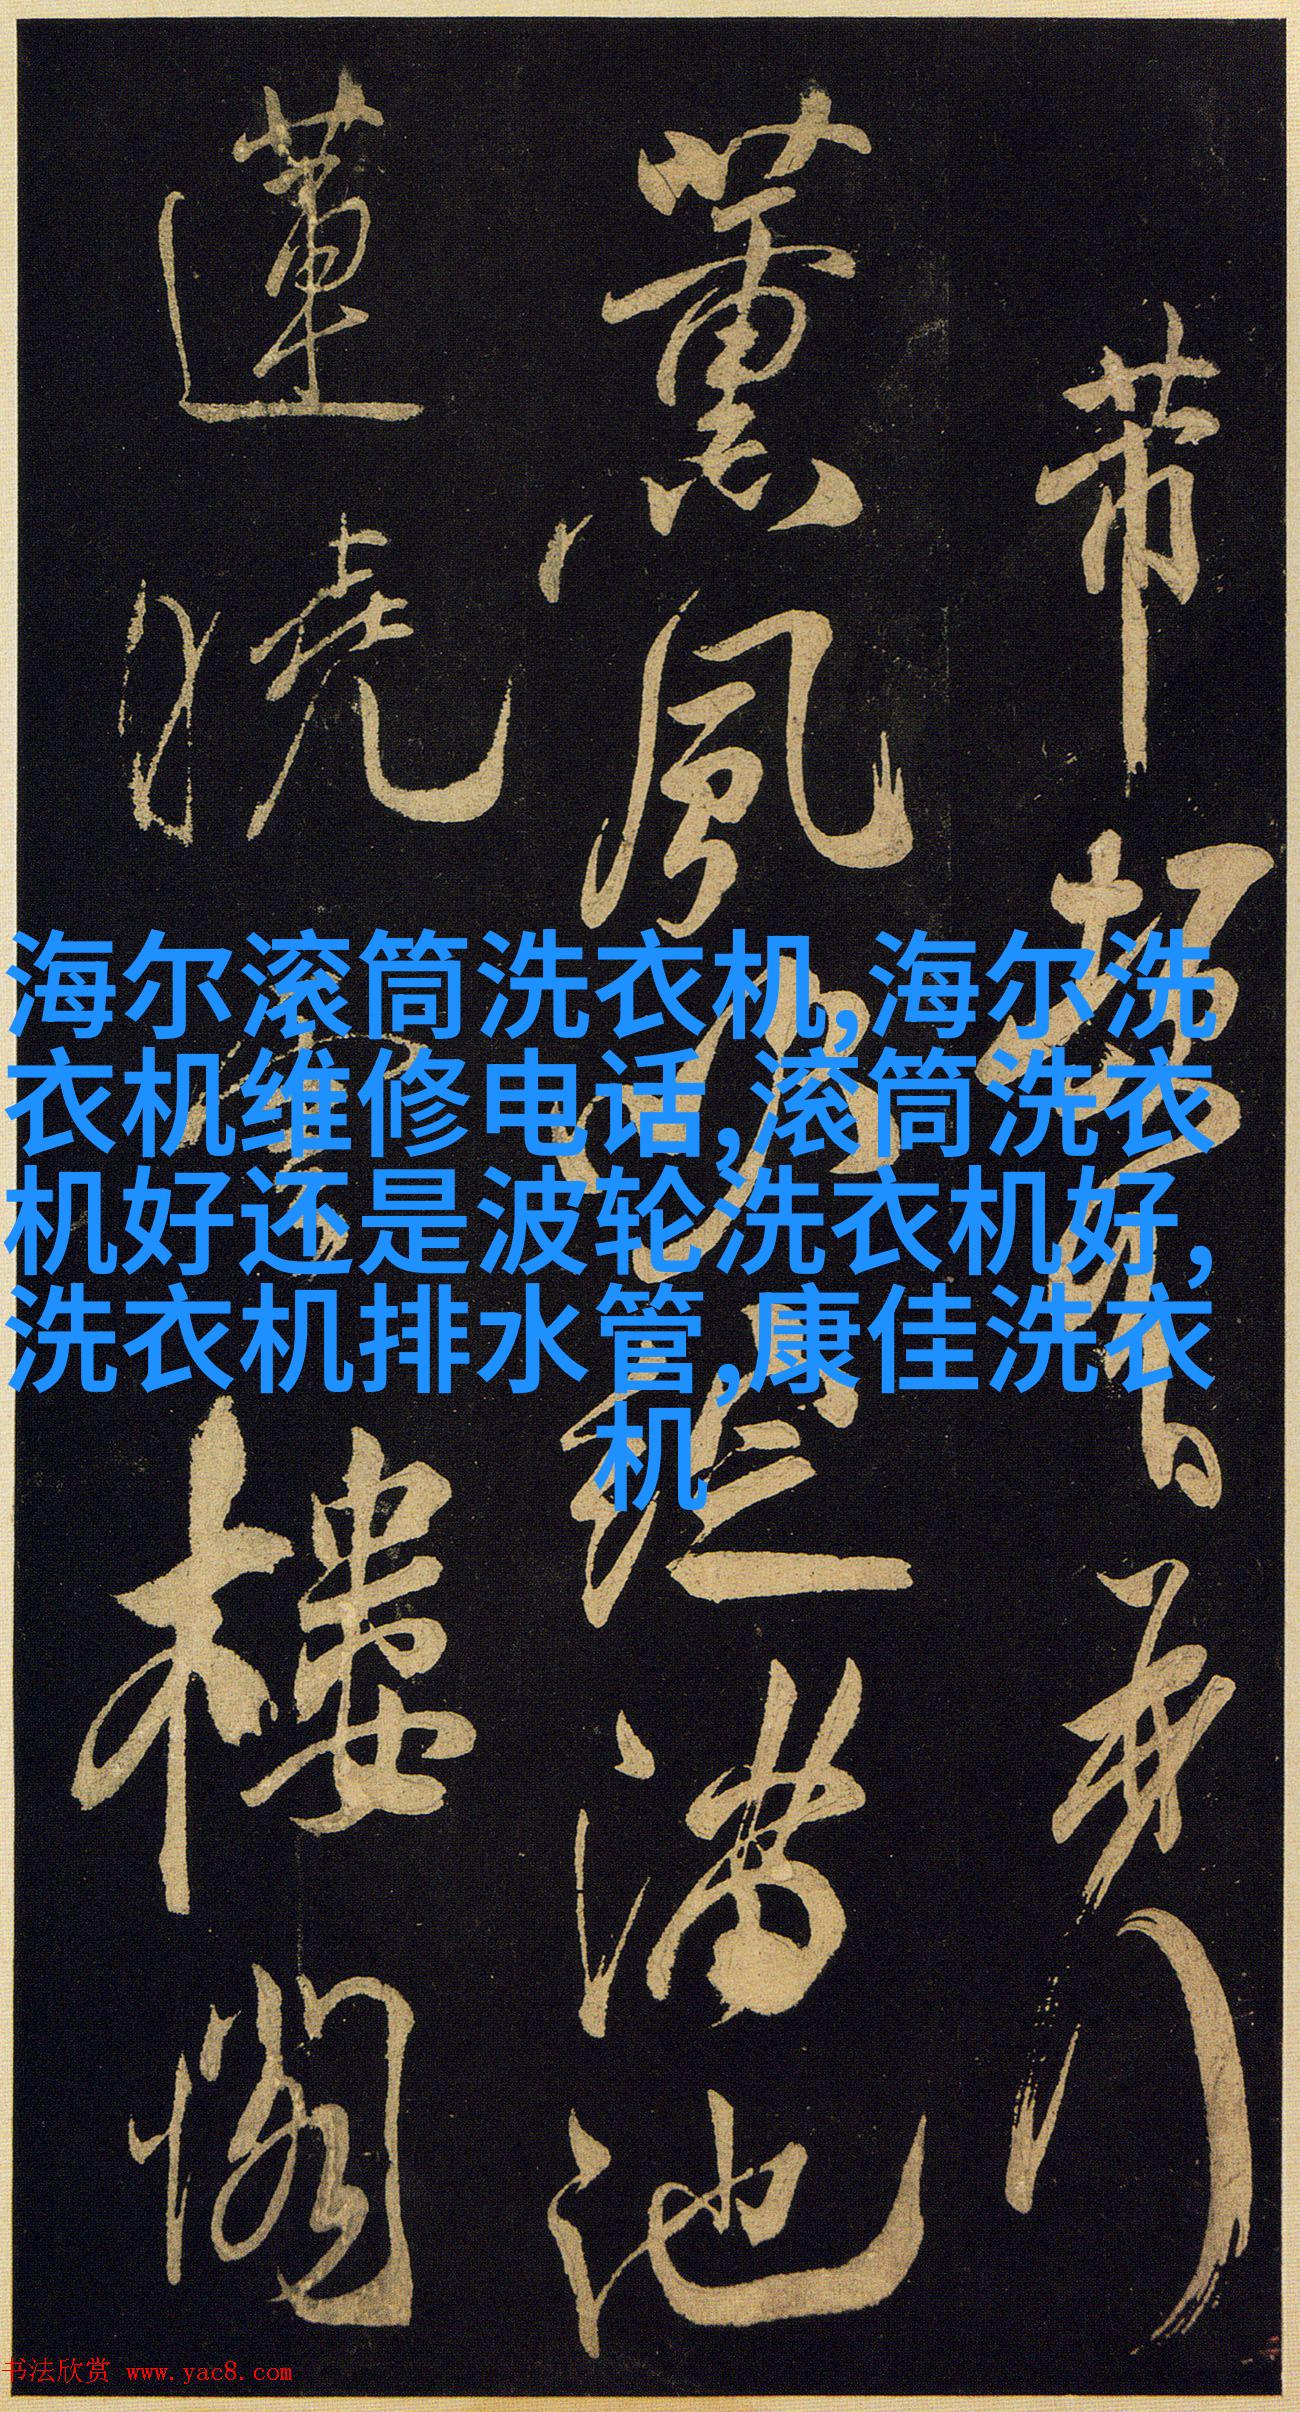 带
薰风
满池
莲晓
楼阁
海尔滚筒洗衣机,海尔洗
衣机维修电话,滚筒洗衣
机好还是波轮洗衣机好,
洗衣机排水管,康佳洗衣
机
书法欣赏 www.yac8.com